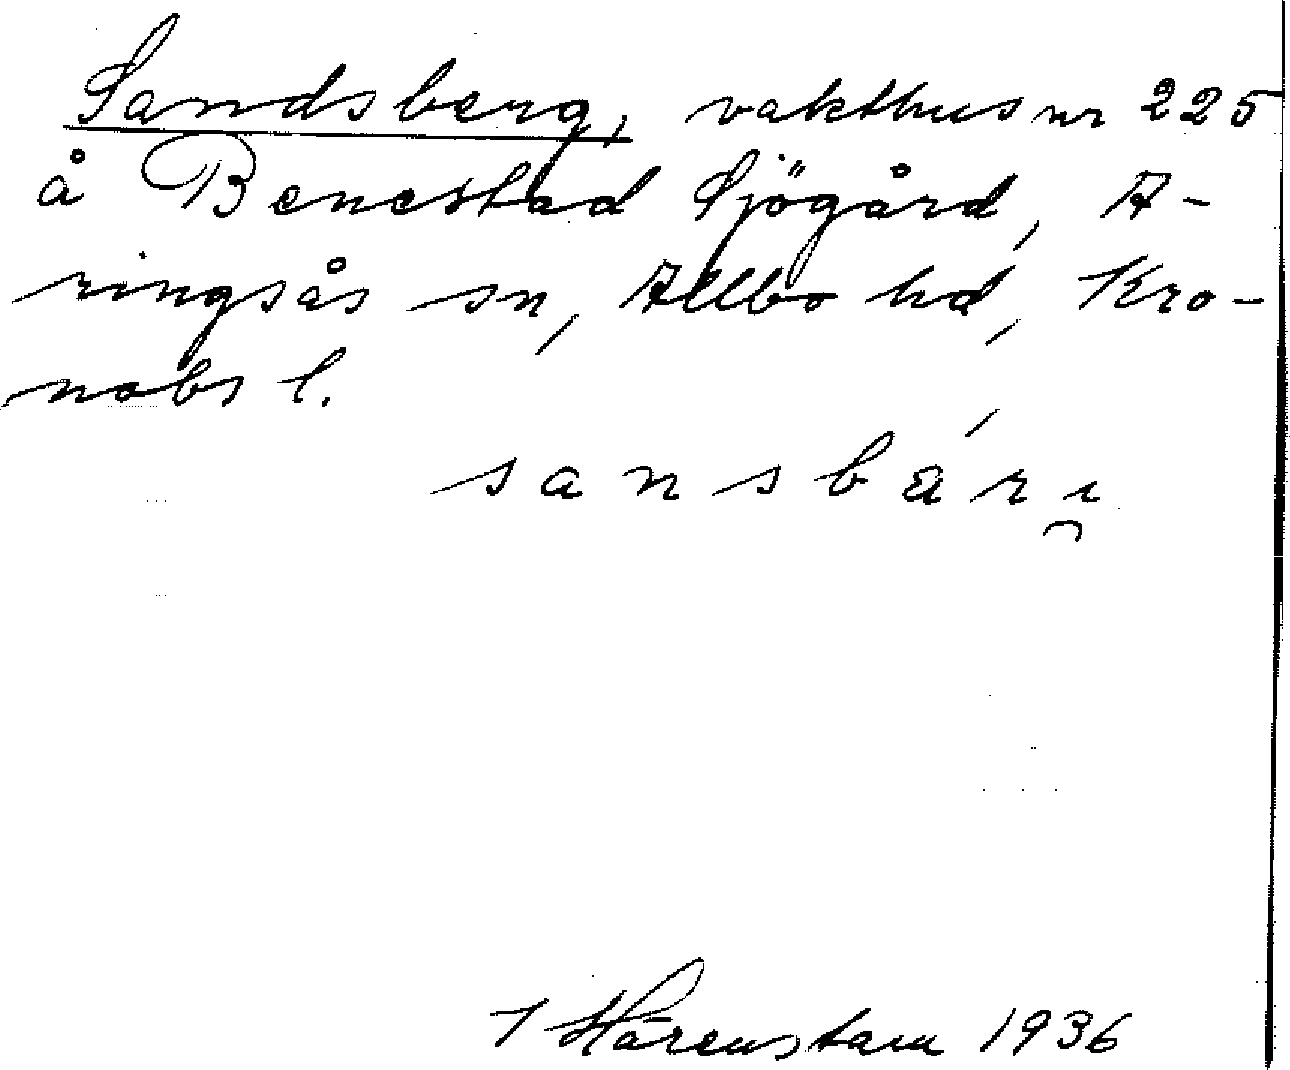 Sandsberg, vakthus nr 225
å Benestad Sjögård, A-
ringsås sn, Allbo hd, Kro-
nobs l.
sansbárı̯
I Härenstam 1936